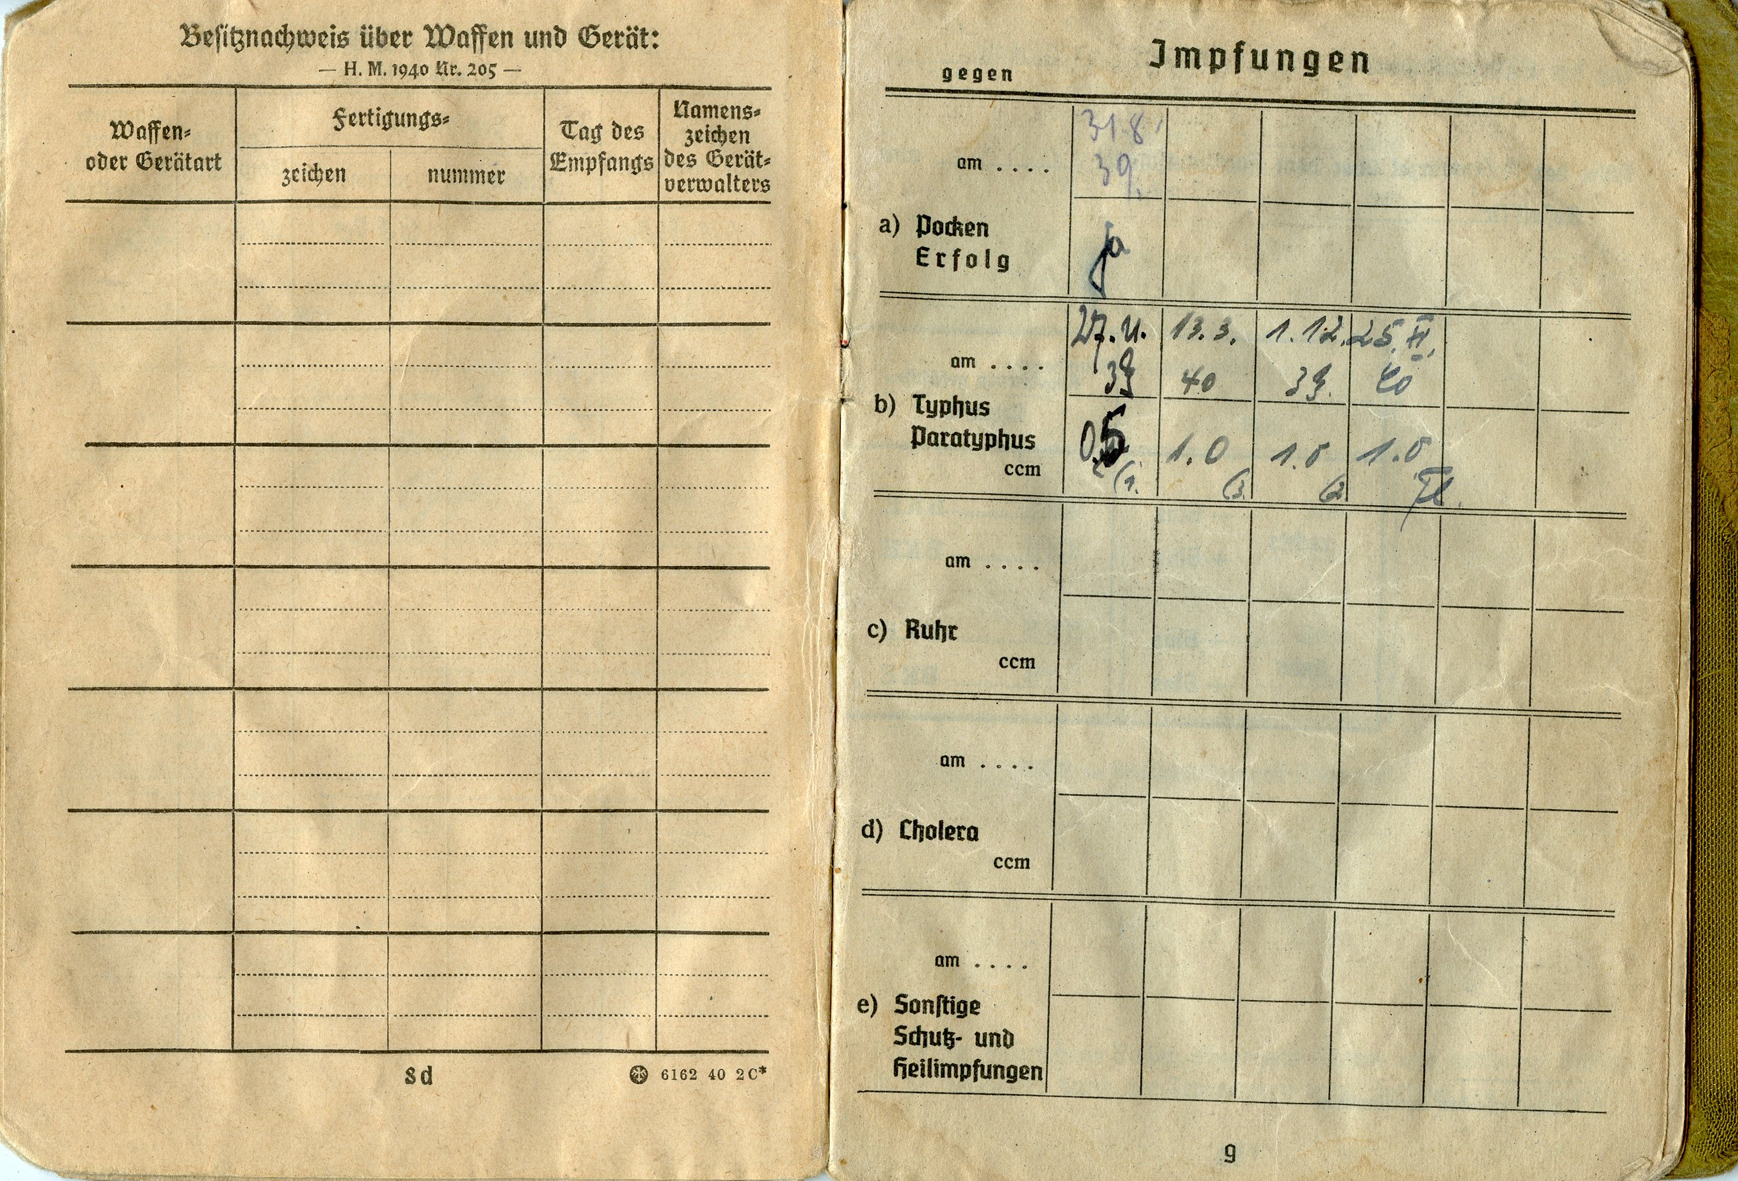 Besitznachweis über Waffen und Gerät:
— H. M. 1940 Nr. 205 —
Waffen-
oder Gerätart
Fertigungs-
zeichen
nummer
Tag des
Empfangs
Namens-
zeichen
des Gerät-
verwalters
8d
6162 40 2C*
Impfungen
gegen
am . . . .
31.8.
39.
a) Pocken
Erfolg
ja
am . . . .
27.11. 13.3. 1.12. 25.II.
39 40 39. 40
b) Typhus
Paratyphus
ccm
0,5 1.0 1.0 1.0
(1. (3. (2.
am . . . .
c) Ruhr
ccm
am . . . .
d) Cholera
ccm
am . . . .
e) Sonstige
Schutz- und
Heilimpfungen
9